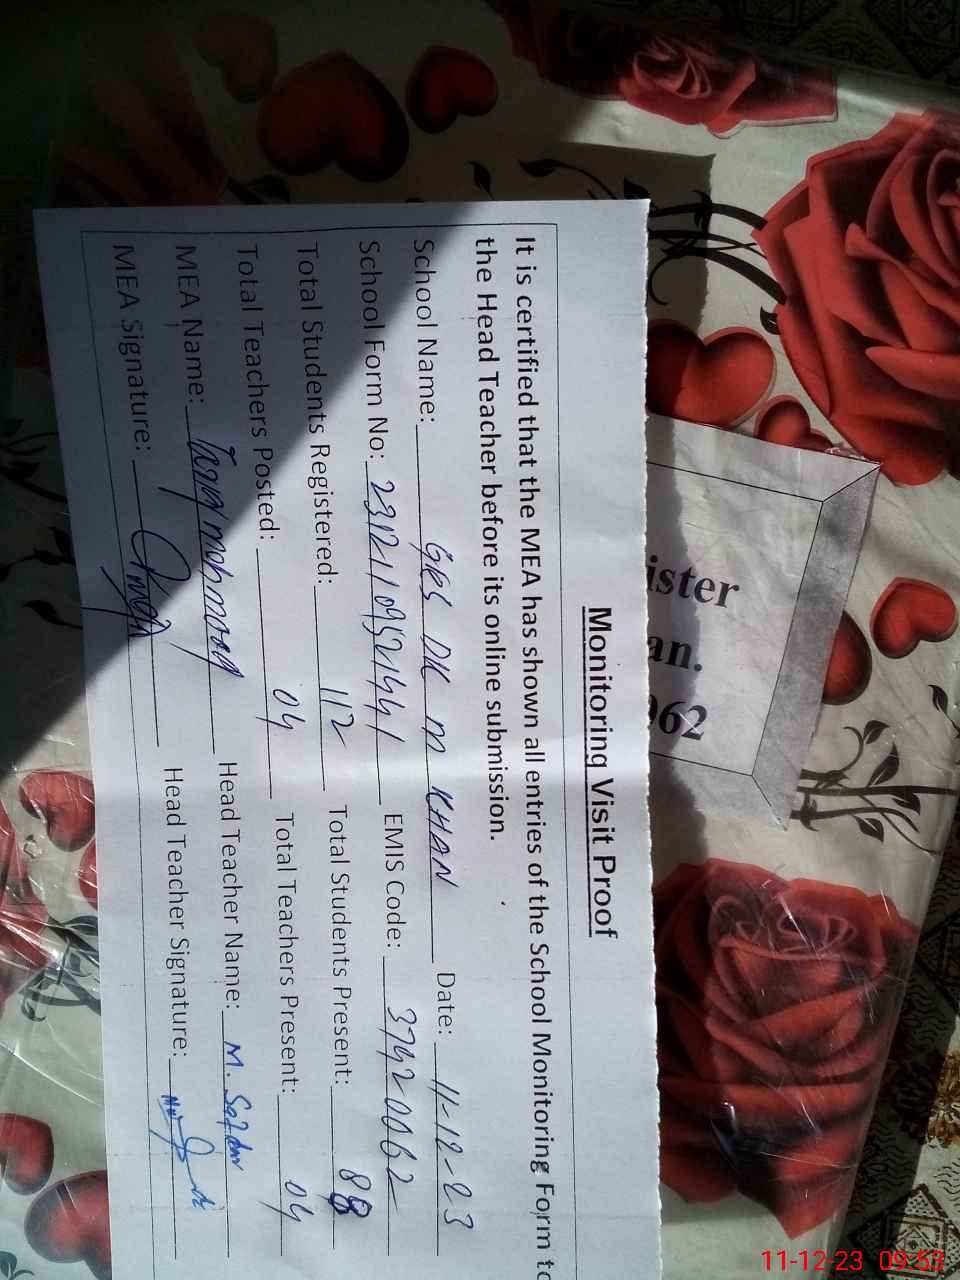 Monitoring Visit Proof
It is certified that the MEA has shown all entries of the School Monitoring Form to
the Head Teacher before its online submission.
School Name: GPS DK M KHAN Date: 11-12-23
School Form No: EMIS Code: 37420062
Total Students Registered: 112 Total Students Present: 88
Total Teachers Posted: 04 Total Teachers Present: 04
MEA Name: Head Teacher Name: M.
MEA Signature: Head Teacher Signature:
ister
an.
062
11-12-23 09:53